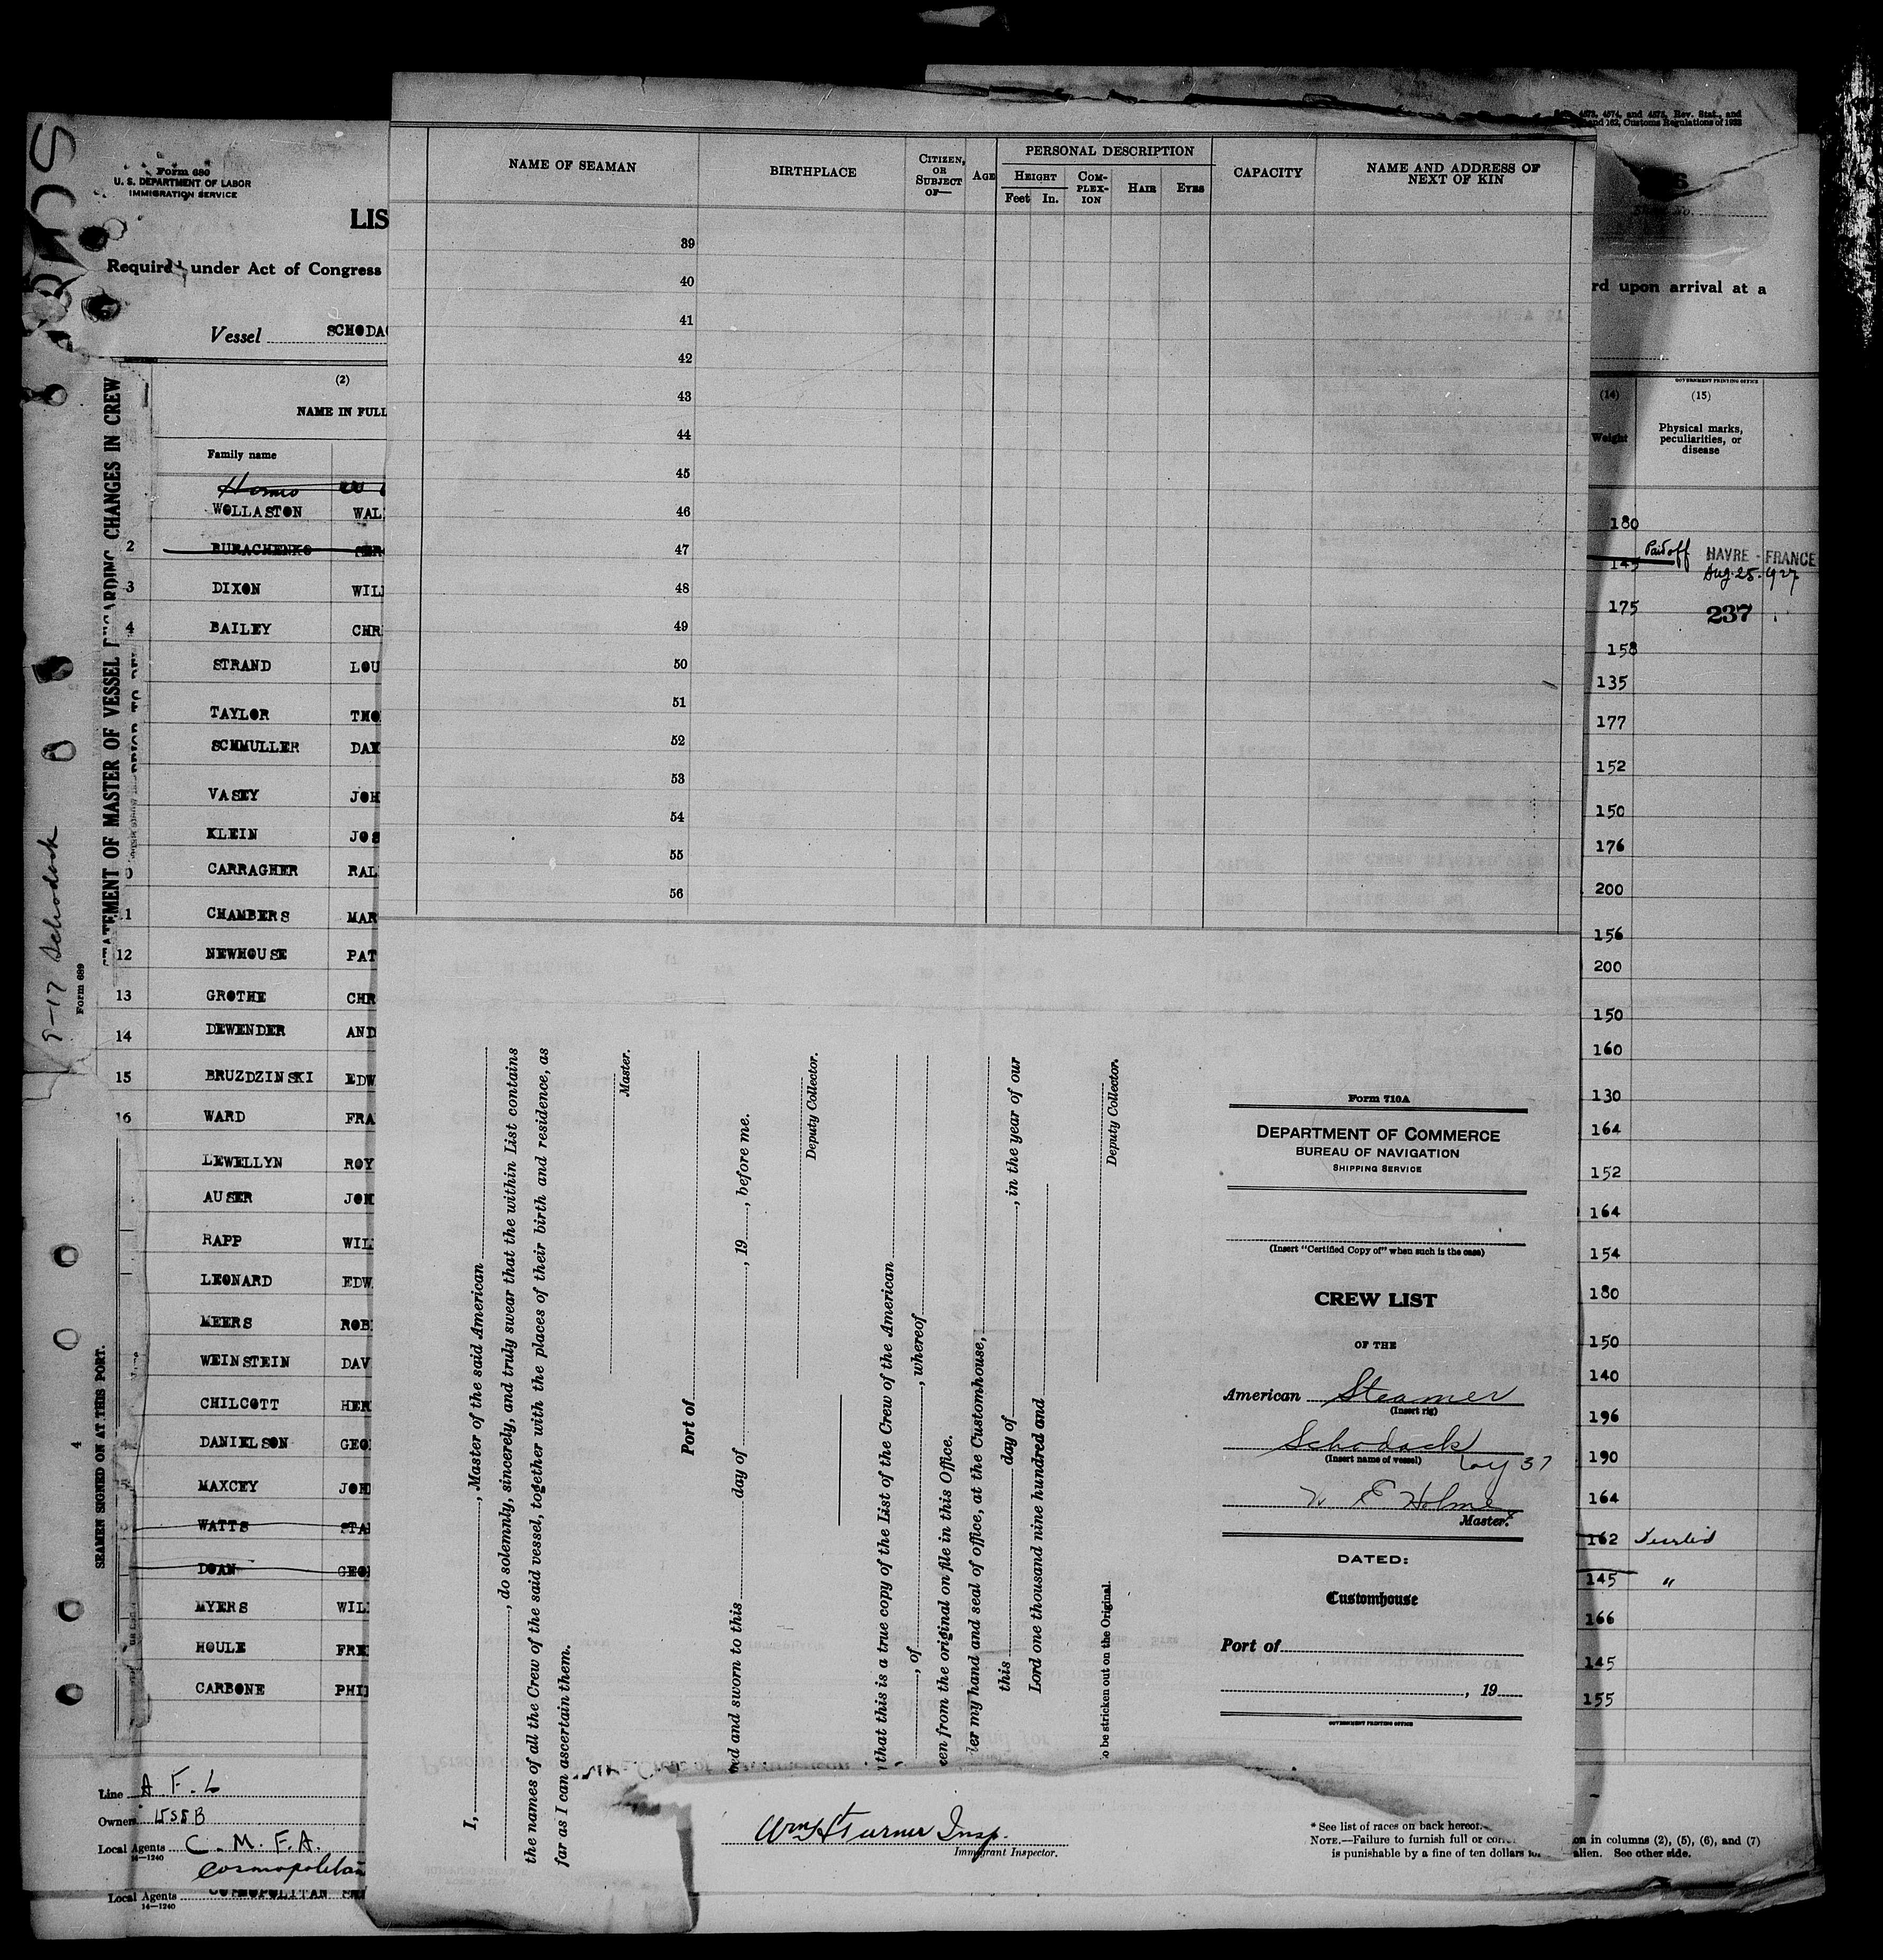 4573, 4574, and 4575, Rev. Stat., and
and 162, Customs Regulations of 1923
Form 680
U. S. DEPARTMENT OF LABOR
IMMIGRATION SERVICE
LIS
Required under Act of Congress
rd upon arrival at a
Vessel SCHODAC
(2)
NAME IN FULL
Family name
WOLLASTON WAL
2 BURACHENKO
3 DIXON WIL
4 BAILEY CHR
STRAND LOU
TAYLOR THO
SCHMULLER DAV
VASEY JOH
KLEIN JOS
CARRAGHER RAL
CHAMBERS MAR
12 NEWHOUSE PAT
13 GROTHE CHR
14 DEWENDER AND
15 BRUZDZINSKI EDW
16 WARD FRA
LEWELLYN ROY
AUSER JOH
RAPP WIL
LEONARD EDW
MEERS ROB
WEINSTEIN DAV
CHILCOTT HER
DANIELSON GEO
MAXCEY JOH
WATTS STA
DOAN GEO
MYERS WIL
HOULE FRE
CARBONE PHI
Line A. F. L
Owners USSB
Local Agents C. M. F. A.
14-1240
Cosmopolitan
Local Agents COSMOPOLITAN
14-1240
STATEMENT OF MASTER OF VESSEL REGARDING CHANGES IN CREW
Form 689
Schodack
SEAMEN SIGNED ON AT THIS PORT.
NAME OF SEAMAN
BIRTHPLACE
CITIZEN, OR SUBJECT OF—
AGE
PERSONAL DESCRIPTION
HEIGHT
Feet In.
COMPLEXION
HAIR
EYES
CAPACITY
NAME AND ADDRESS OF NEXT OF KIN
39
40
41
42
43
44
45
46
47
48
49
50
51
52
53
54
55
56
I, , Master of the said American
, do solemnly, sincerely, and truly swear that the within List contains
the names of all the Crew of the said vessel, together with the places of their birth and residence, as
far as I can ascertain them.
Master.
Port of
ed and sworn to this day of , 19 , before me.
Deputy Collector.
that this is a true copy of the List of the Crew of the American
, of , whereof
en from the original on file in this Office.
er my hand and seal of office, at the Customhouse,
this day of , in the year of our
Lord one thousand nine hundred and
Deputy Collector.
o be stricken out on the Original.
Form 710A
DEPARTMENT OF COMMERCE
BUREAU OF NAVIGATION
SHIPPING SERVICE
(Insert "Certified Copy of" when such is the case)
CREW LIST
OF THE
American Steamer
(Insert rig)
Schodack
(Insert name of vessel)
Voy 37
W E Holmes
Master.
DATED:
Customhouse
Port of
, 19
GOVERNMENT PRINTING OFFICE
Wm H Turner Insp.
Immigrant Inspector.
* See list of races on back hereof.
NOTE.—Failure to furnish full or on in columns (2), (5), (6), and (7)
is punishable by a fine of ten dollars for alien. See other side.
GOVERNMENT PRINTING OFFICE
(14)
Weight
(15)
Physical marks, peculiarities, or disease
180
145 Paid off HAVRE - FRANCE
Aug. 25. 1927
175 237
158
135
177
152
150
176
200
156
200
150
160
130
164
152
164
154
180
150
140
196
190
164
162
145 "
166
145
155